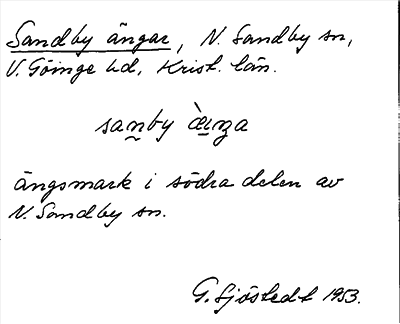 Sandby ängar, N. Sandby sn,
V. Göinge hd, Krist. län.
sanby æ̀i̯nza
ängsmark i södra delen av
N. Sandby sn.
G. Sjöstedt 1953.